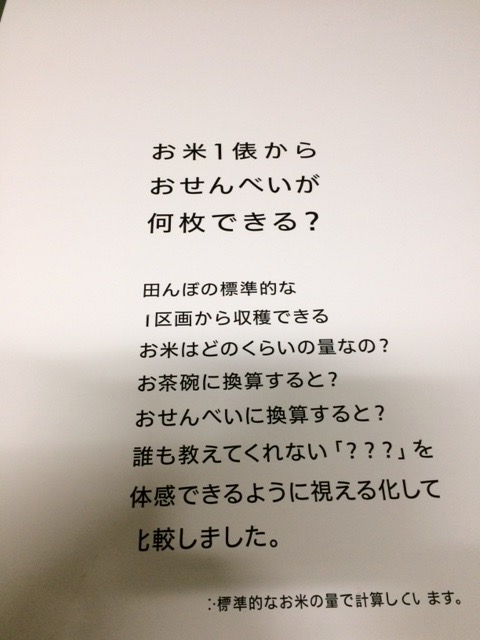 お米1俵から
おせんべいが
何枚できる?
田んぼの標準的な
1区画から収穫できる
お米はどのくらいの量なの?
お茶碗に換算すると?
おせんべいに換算すると?
誰も教えてくれない「???」を
体感できるように視える化して
比較しました。
※標準的なお米の量で計算しています。